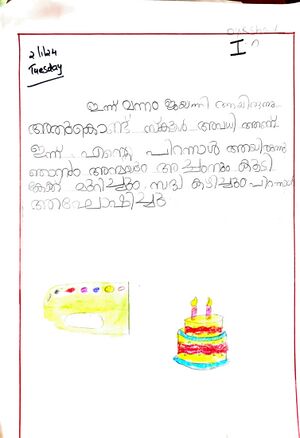 I
2/1/24
Tuesday
ഇന്ന് മന്നം ജയന്തി ആയിരുന്നു.
അതുകൊണ്ട് സ്കൂൾ അവധി ആണ്.
ഇന്ന് എന്റെ പിറന്നാൾ ആയിരുന്നു
ഞാനും അമ്മയും അച്ഛനും കൂടി
കേക്ക് മുറിച്ചും സദ്യ കഴിച്ചും പിറന്നാൾ
ആഘോഷിച്ചു.